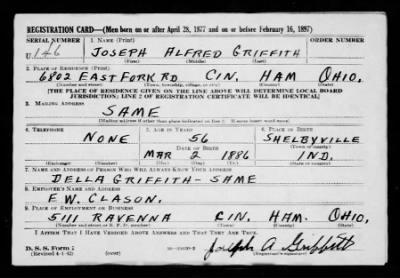 REGISTRATION CARD—(Men born on or after April 28, 1877 and on or before February 16, 1897)
SERIAL NUMBER 1. NAME (Print) ORDER NUMBER
U 146 JOSEPH ALFRED GRIFFITH
(First) (Middle) (Last)
2. PLACE OF RESIDENCE (Print)
6802 EAST FORK RD CIN. HAM OHIO,
(Number and street) (Town, township, village, or city) (County) (State)
[THE PLACE OF RESIDENCE GIVEN ON THE LINE ABOVE WILL DETERMINE LOCAL BOARD
JURISDICTION; LINE 2 OF REGISTRATION CERTIFICATE WILL BE IDENTICAL]
3. MAILING ADDRESS
SAME
[Mailing address if other than place indicated on line 2. If same insert word same]
4. TELEPHONE 5. AGE IN YEARS 6. PLACE OF BIRTH
NONE 56 SHELBYVILLE
DATE OF BIRTH (Town or county)
MAR 2 1886 IND.
(Exchange) (Number) (Mo.) (Day) (Yr.) (State or country)
7. NAME AND ADDRESS OF PERSON WHO WILL ALWAYS KNOW YOUR ADDRESS
DELLA GRIFFITH - SAME
8. EMPLOYER'S NAME AND ADDRESS
E.W. CLASON.
9. PLACE OF EMPLOYMENT OR BUSINESS
5111 RAVENNA CIN. HAM. OHIO,
(Number and street or R. F. D. number) (Town) (County) (State)
I AFFIRM THAT I HAVE VERIFIED ABOVE ANSWERS AND THAT THEY ARE TRUE.
D. S. S. Form 1
(Revised 4-1-42) (over) Joseph A Griffith
(Registrant's signature)